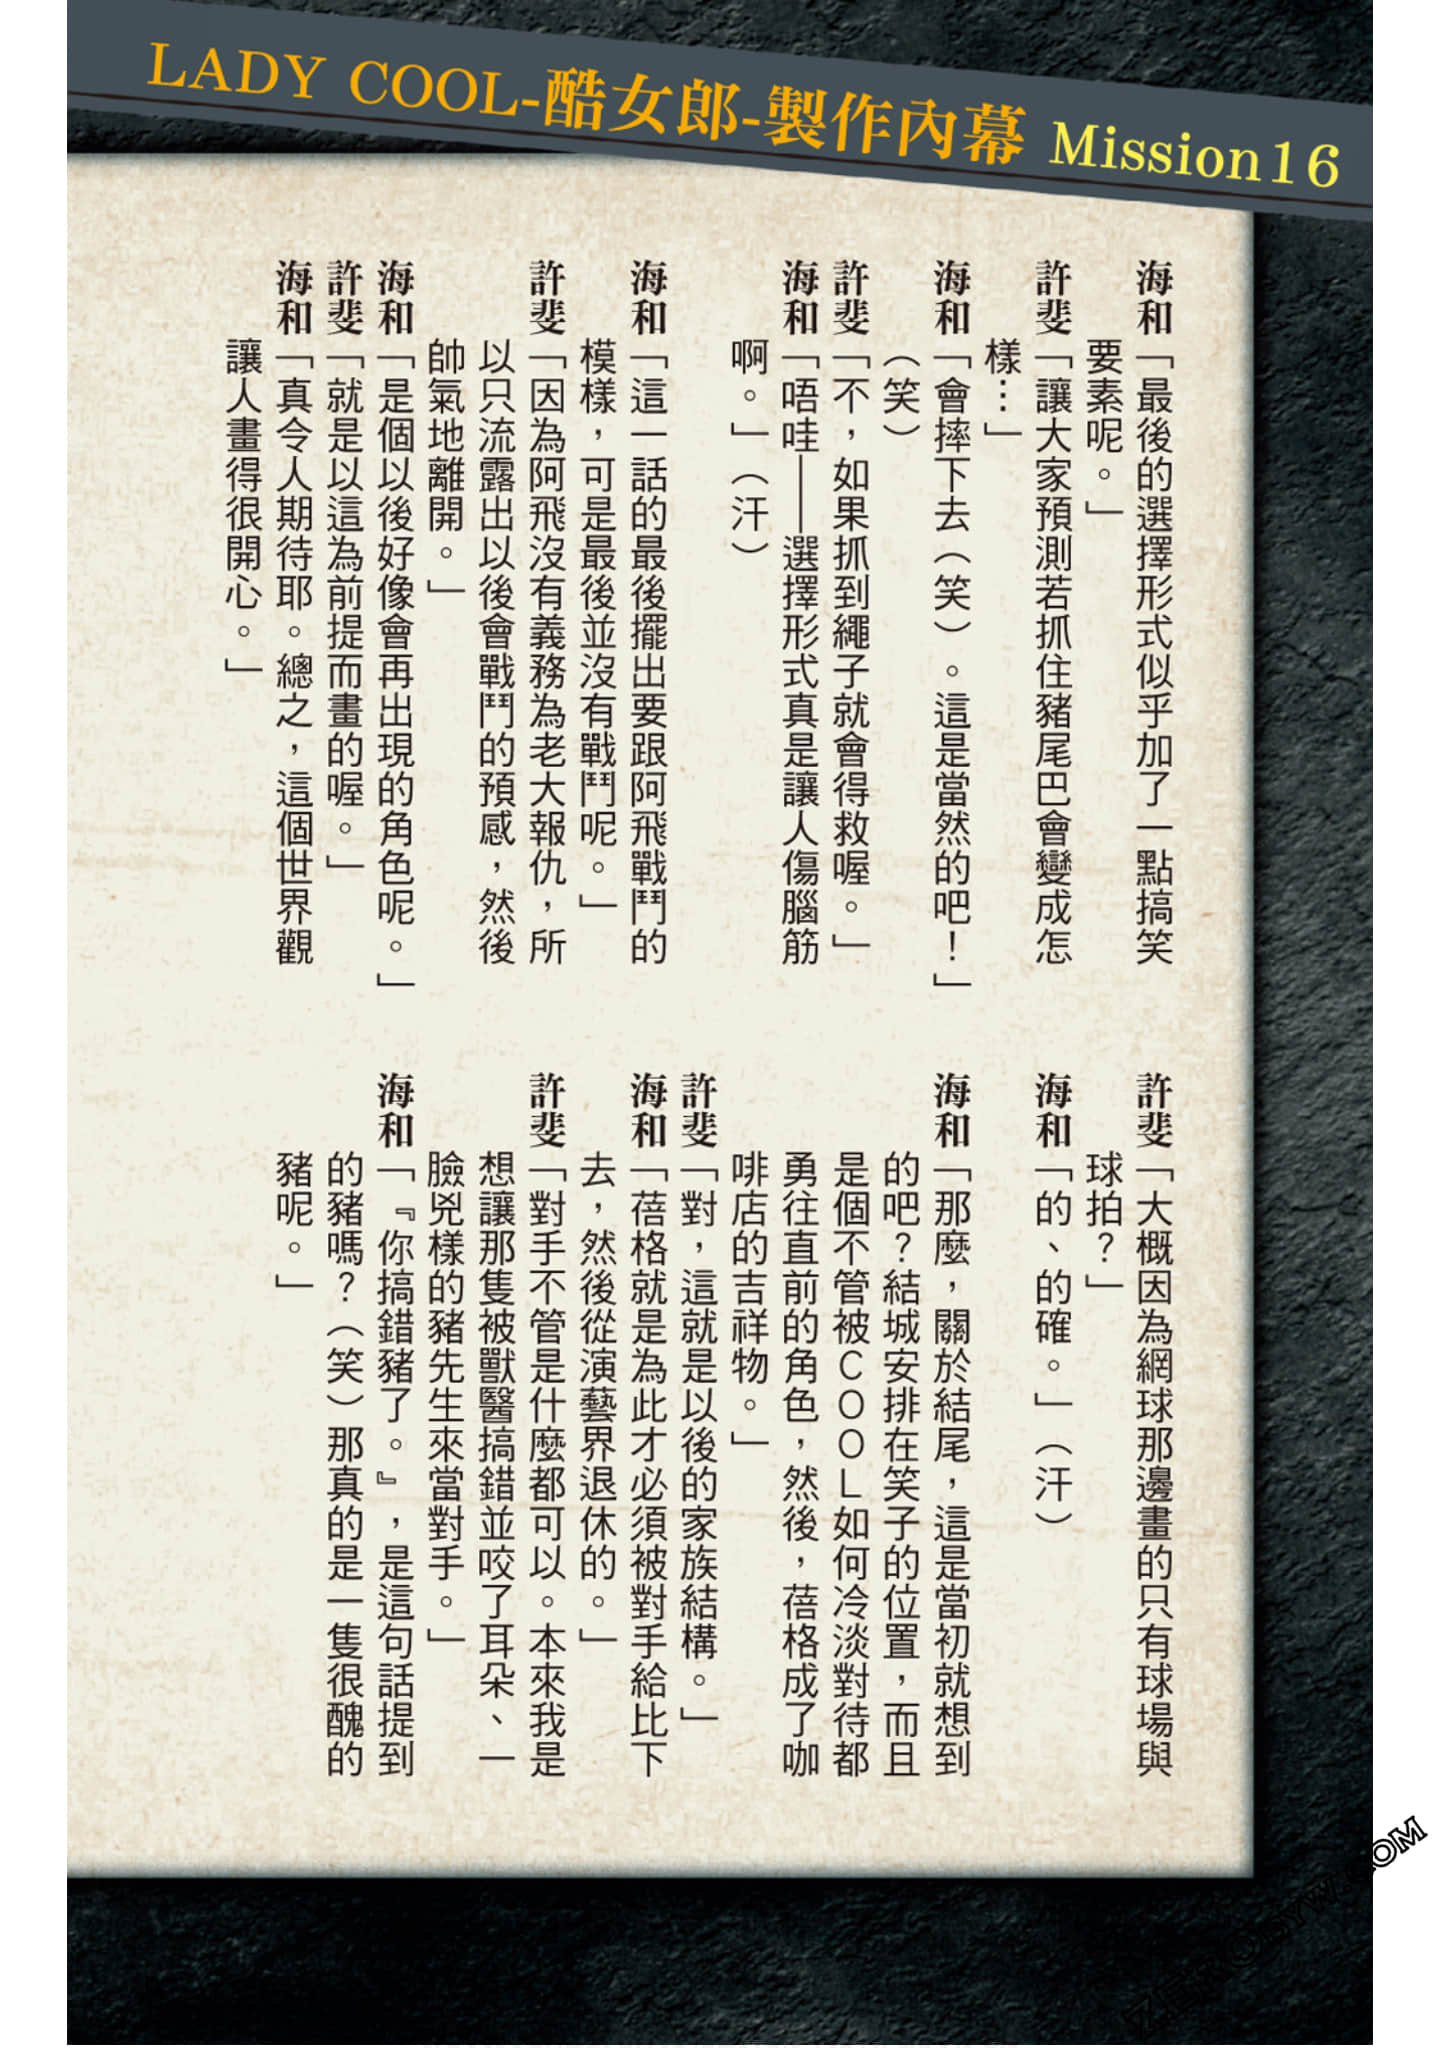 LADY COOL-酷女郎-製作內幕 Mission16
海和「最後的選擇形式似乎加了一點搞笑
要素呢。」
許斐「讓大家預測若抓住豬尾巴會變成怎
樣…」
海和「會摔下去（笑）。這是當然的吧！」
（笑）
許斐「不，如果抓到繩子就會得救喔。」
海和「唔哇——選擇形式真是讓人傷腦筋
啊。」（汗）
海和「這一話的最後擺出要跟阿飛戰鬥的
模樣，可是最後並沒有戰鬥呢。」
許斐「因為阿飛沒有義務為老大報仇，所
以只流露出以後會戰鬥的預感，然後
帥氣地離開。」
海和「是個以後好像會再出現的角色呢。」
許斐「就是以這為前提而畫的喔。」
海和「真令人期待耶。總之，這個世界觀
讓人畫得很開心。」
許斐「大概因為網球那邊畫的只有球場與
球拍？」
海和「的、的確。」（汗）
海和「那麼，關於結尾，這是當初就想到
的吧？結城安排在笑子的位置，而且
是個不管被ＣＯＯＬ如何冷淡對待都
勇往直前的角色，然後，蓓格成了咖
啡店的吉祥物。」
許斐「對，這就是以後的家族結構。」
海和「蓓格就是為此才必須被對手給比下
去，然後從演藝界退休的。」
許斐「對手不管是什麼都可以。本來我是
想讓那隻被獸醫搞錯並咬了耳朵、一
臉兇樣的豬先生來當對手。」
海和「『你搞錯豬了。』，是這句話提到
的豬嗎？（笑）那真的是一隻很醜的
豬呢。」